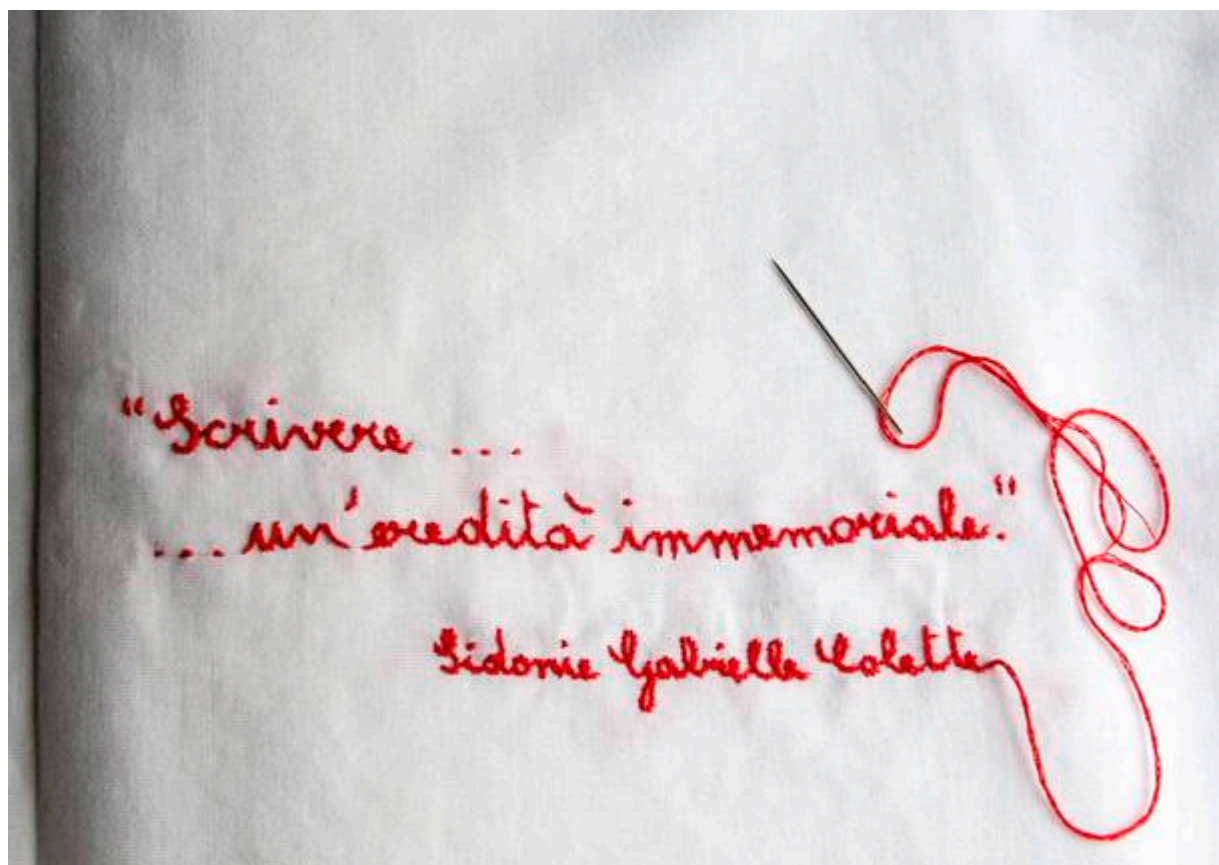 “Scrivere ...
... un'eredità immemoriale.”
Sidonie Gabrielle Colette